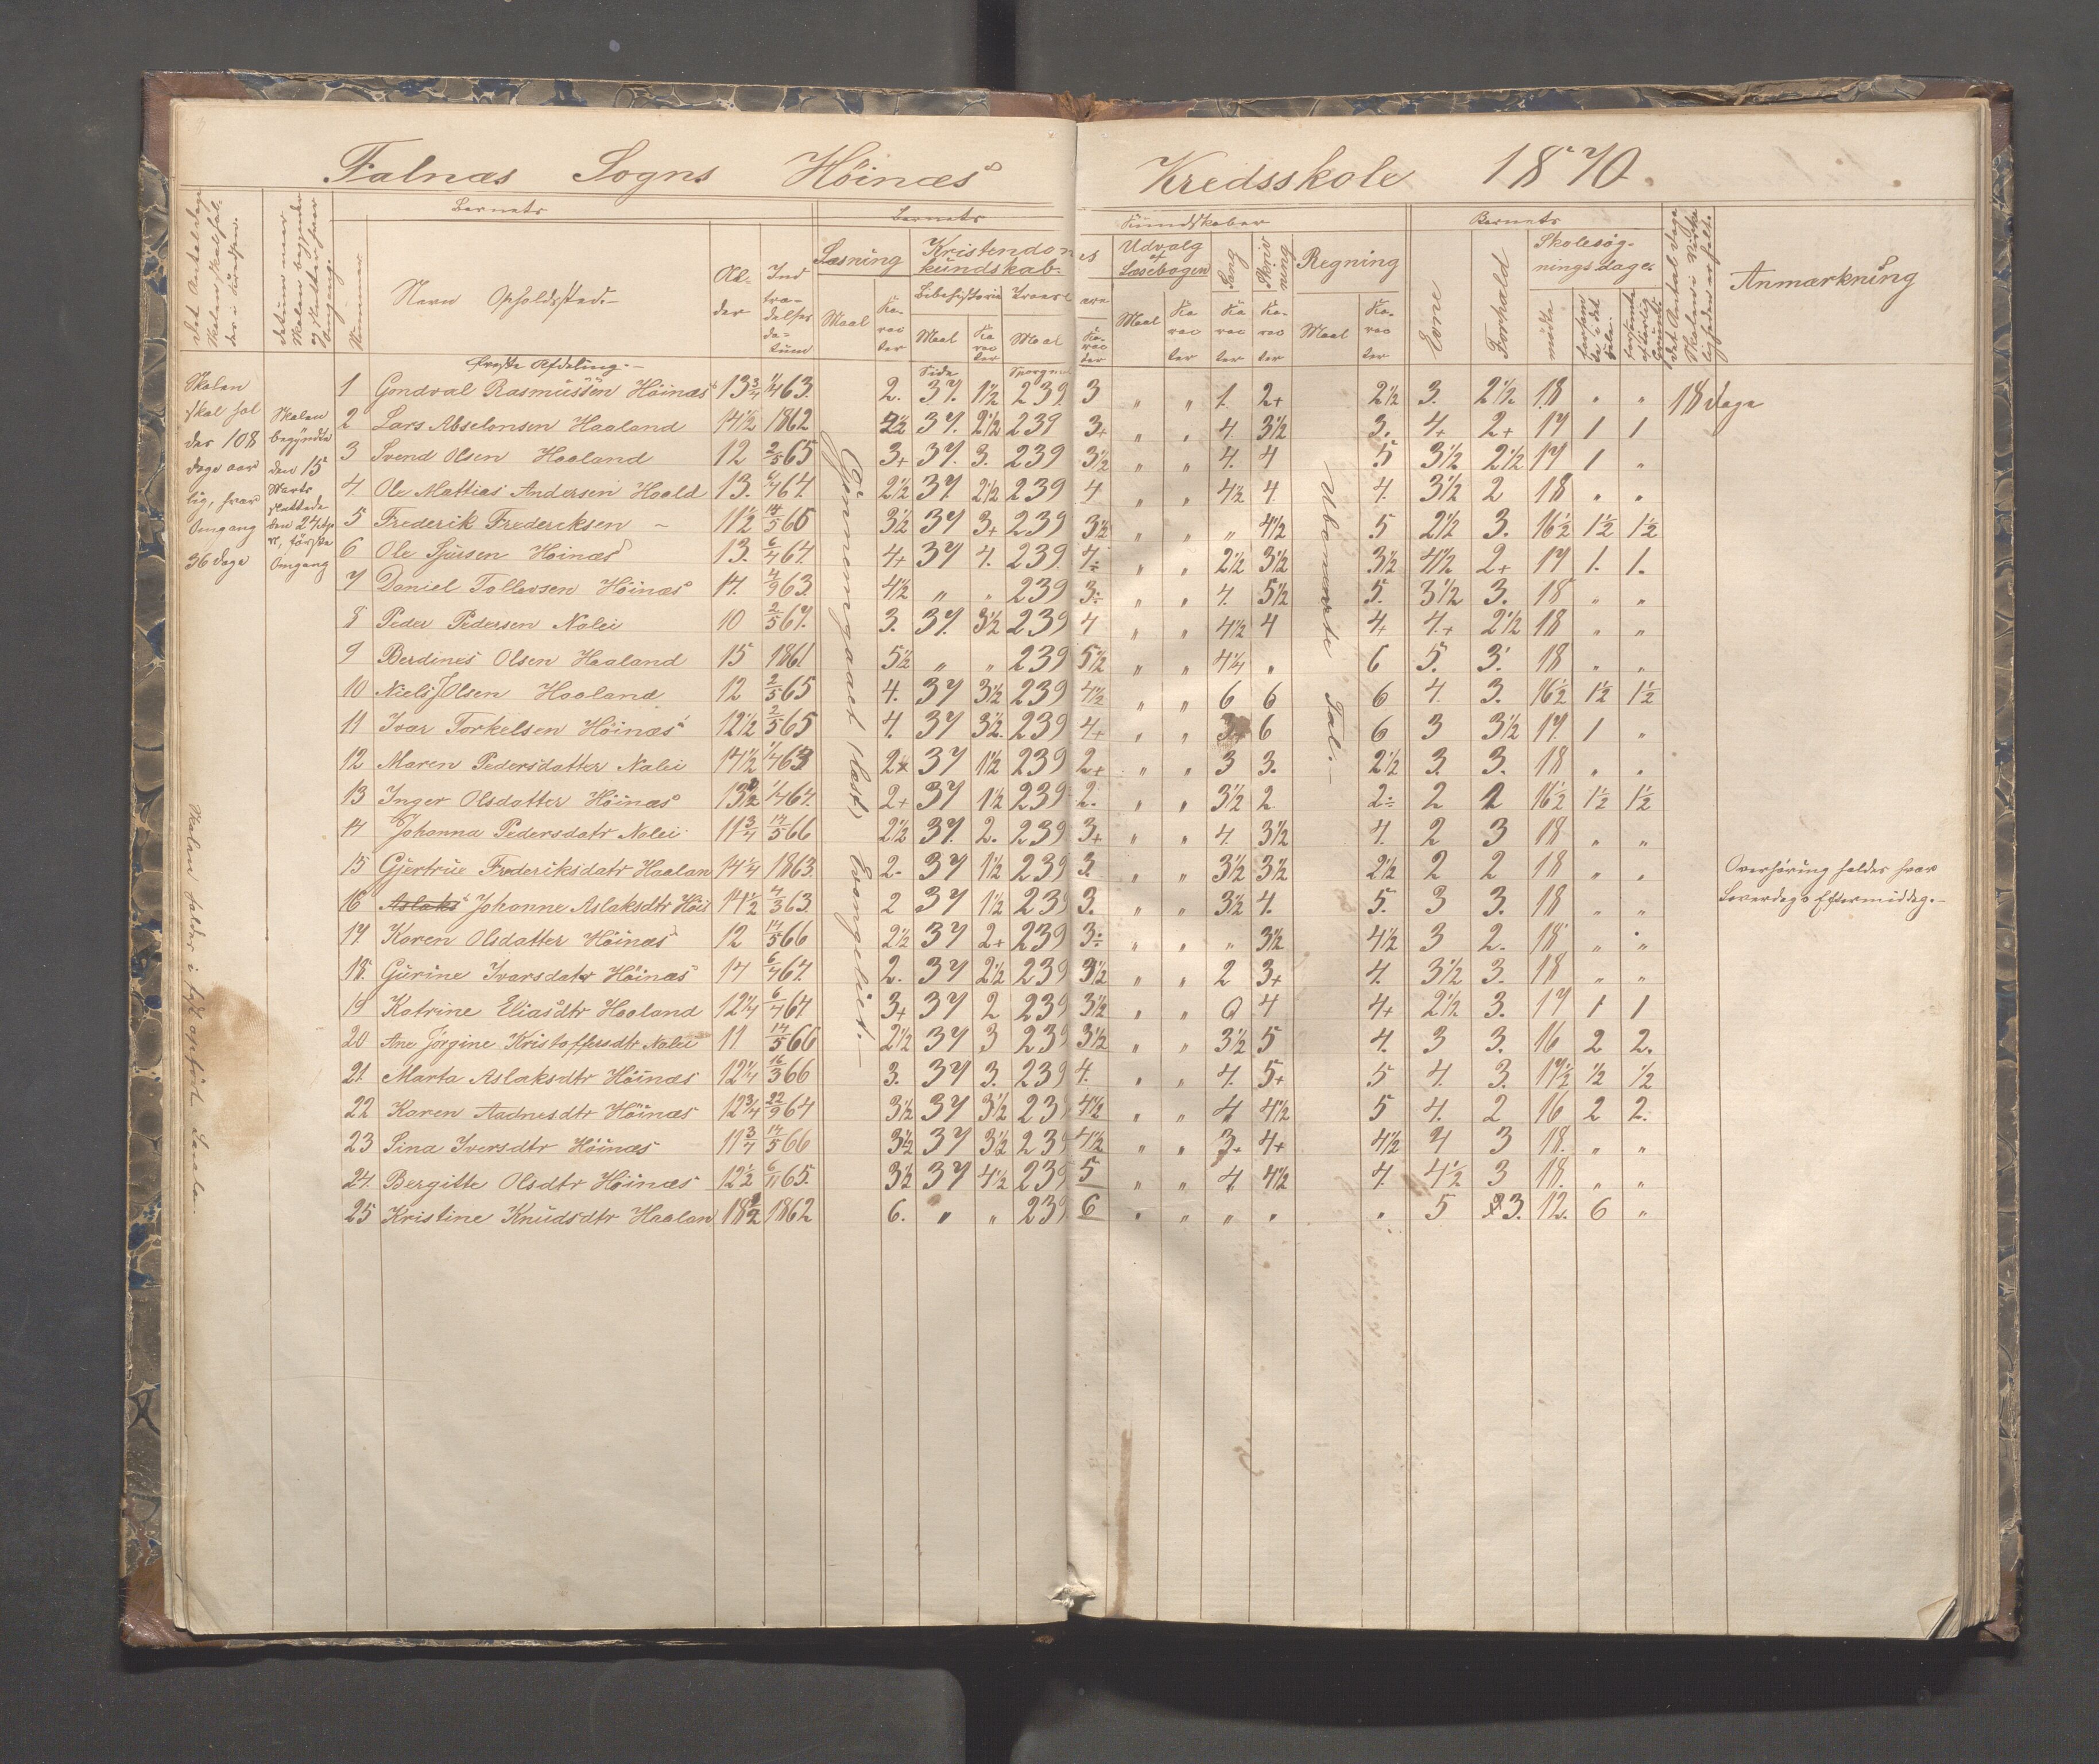 Falnæs Sogns Höinæs Kredsskole 1870.
Bernets Bernets Kundskaber Bernets
Læsning Kristendoms kundskab. Udvalg af Læsebogen Sang Skrivning Regning Evne Forhold Skolesøgningsdage. Anmærkning
Navn Opholdssted.
Alder Indtrædelsesdatum Maal Karacter Bibelhistorie Troesl ære
Maal Karacter Maal Karacter Maal Karacter Karacter Karacter Maal Karacter mødte
Første Afdeling.
Side Spørgsm
Skolen skal holdes 108 dage aarlig, hver Omgang 36 dage
Skolen begyndte den 15 Marts sluttede den 24
Omgang
1 Gondval Rasmussen Höinæs 13 3/4 1/4 63. 2. 37. 1½ 239. 3 " " 1. 2+ 2½ 3. 2½ 18 " " 18 dage
2 Lars Abselonsen Haaland 14½ 1862 2½ 37. 2½ 239 3+ " " 4. 3½ 3. 4+ 2+ 17 1 1
3 Svend Olsen Haaland 12 2/5 65 3+ 37. 3. 239 3½ " " 4. 4 5 3½ 2½ 17 1 "
4. Ole Mattias Andersen Haald 13. 6/4 64. 2½ 37. 2½ 239 4 " " 4½ 4. 4. 3½ 2 18 " "
5 Frederik Fredericksen – 11½ 14/5 66 3½ 37 3+ 239 3½ " " " 4½ 5 2½ 3. 16½ 1½ 1½
6 Ole Sjursen Höinæs 13. 6/4 64. 4+ 37 4. 239. 4÷ " " 2½ 3½ 3½ 4½ 2+ 17 1. 1.
7 Daniel Tollevsen Höinæs 14. 4/9 63. 4½ " " 239 3÷ " " 4. 5½ 5. 3½ 3. 18 " "
8 Peder Pedersen Nolei 10 2/5 67. 3. 37. 3½ 239 4 " " 4½ 4 4+ 4.+ 2½ 18 " "
9 Berdines Olsen Haaland 15 1861 5½ " " 239 5½ " " 4¼ " 6 5. 3. 18 " "
10 Niels J Olsen Haaland 12 2/5 65 4. 37 3½ 239 4½ " " 6 6 6 4. 3. 16½ 1½ 1½
11 Ivar Torkelsen Höinæs 12½ 2/5 65 4. 37 3½. 239 4+ " " 3 6 6 3 3½ 17. 1 "
12 Maren Pedersdatter Nolei 14½ 1/4 63 2+ 37 1½ 239 2+ " " 3 3. 2½ 3. 3. 18 " "
13 Inger Olsdatter Höinæs 13½ 1/4 64. 2+ 37 1½ 239 2. " " 3½ 2 2÷ 2 2 16½ 1½ 1½
14 Johanna Pedersdatr Nolei 11 3/4 14/5 66 2½ 37. 2. 239 3+ " " 4. 3½ 4. 2 3 18 " "
15 Gjertrue Frederiksdatr Haalan 14¼ 1863. 2. 37 1½ 239 3. " " 3½ 3½ 2½ 2 2 18 " " Overhøring holdes hver
16 Aslaks Johanne Aslaksdtr Höi 14½ 4/3 63. 2 37 1½ 239 3. " " 3½ 4. 5. 3 3. 18 " " Løverdags Eftermiddag.
17. Karen Olsdatter Höinæs 12 14/5 66 2½ 37 2+ 239 3÷ " " " 3½ 4½ 3 2. 18 " "
18. Gurine Ivarsdatr Höinæs 14 6/4 64. 2. 37 2½ 239 3½ " " 2 3+ 4. 3½ 3. 18 " "
19 Katrine Eliasdtr Haaland 12¼ 6/4 64 3+ 37 2 239 3½ " " 4 4+ 2½ 3. 17 1 1
20 Ane Jörgine Kristoffersdtr Nolei 11 14/5 66 2½ 37 3 239 3½ " " 3½ 5 4. 3 3. 16 2 2.
21. Marta Aslaksdtr Höinæs 12¼ 16/3 66 3. 37 3. 239 4. " " 4. 5+ 5 4. 3. 17½ ½ ½
22 Karen Aadnesdtr Höinæs 12 3/4 22/9 64 3½ 37 3½ 239 4½ " " 4 4½ 5 4. 2 16 2 2.
23 Sina Iversdtr Höinæs 11 3/4 14/5 66 3½ 37 3½ 239 4½ " " 3+ 4+ 4½ 4 3 18. " "
24. Bergitte Olsdtr Höinæs 12½ 6/11 65. 3½ 37 4½ 239 5 " " 4 4½ 4. 4½ 3 18. " "
25 Kristine Knudsdtr Haalan 18½ 1862 6. " " 239 6 " " " " " 5 3. 12. 6 "
Gjennemgaaet (læst) Evangeliet.–
Ubenævnte Tal.–